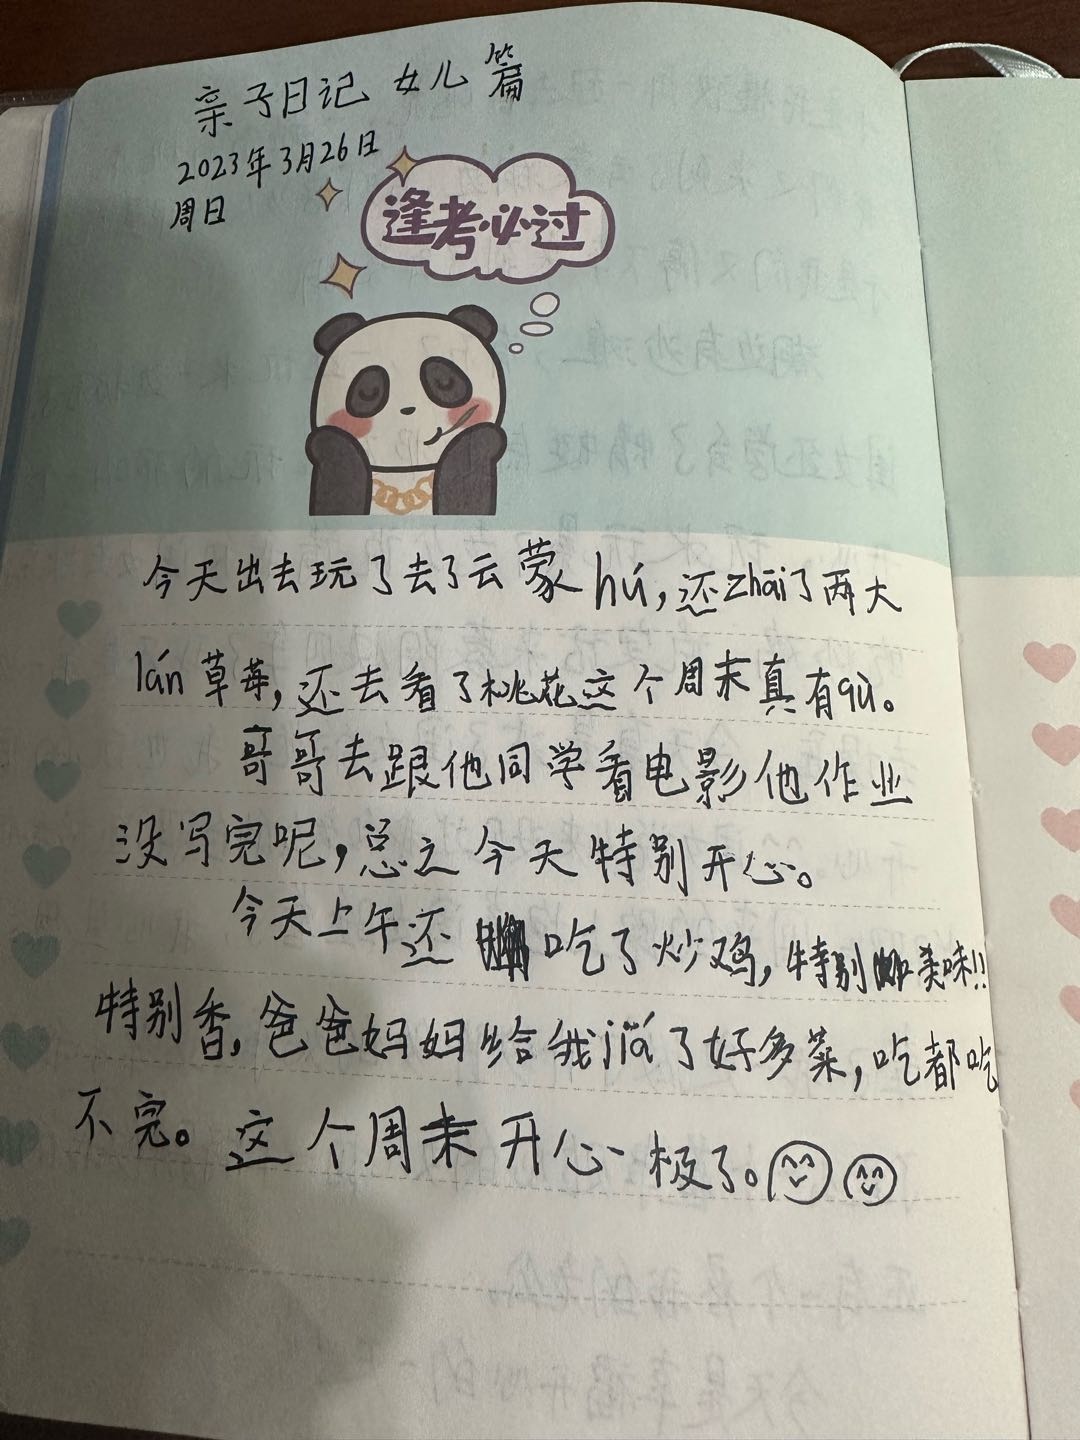 亲子日记 女儿篇
2023年3月26日
周日
逢考必过
今天出去玩了去了云蒙hú,还zhāi了两大
lán草莓,还去看了桃花这个周末真有qù。
哥哥去跟他同学看电影他作业
没写完呢,总之今天特别开心。
今天上午还吃了炒鸡,特别美味!!
特别香,爸爸妈妈给我jiá了好多菜,吃都吃
不完。这个周末开心极了。